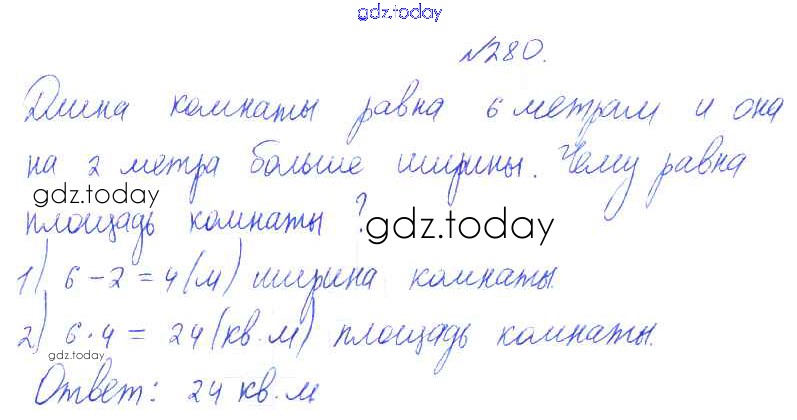 gdz.today
№280.
Длина комнаты равна 6 метрам и она
на 2 метра больше ширины. Чему равна
gdz.today
площадь комнаты?
gdz.today
1) 6-2=4(м) ширина комнаты.
2) 6·4= 24(кв.м) площадь комнаты.
gdz.today
Ответ: 24 кв.м